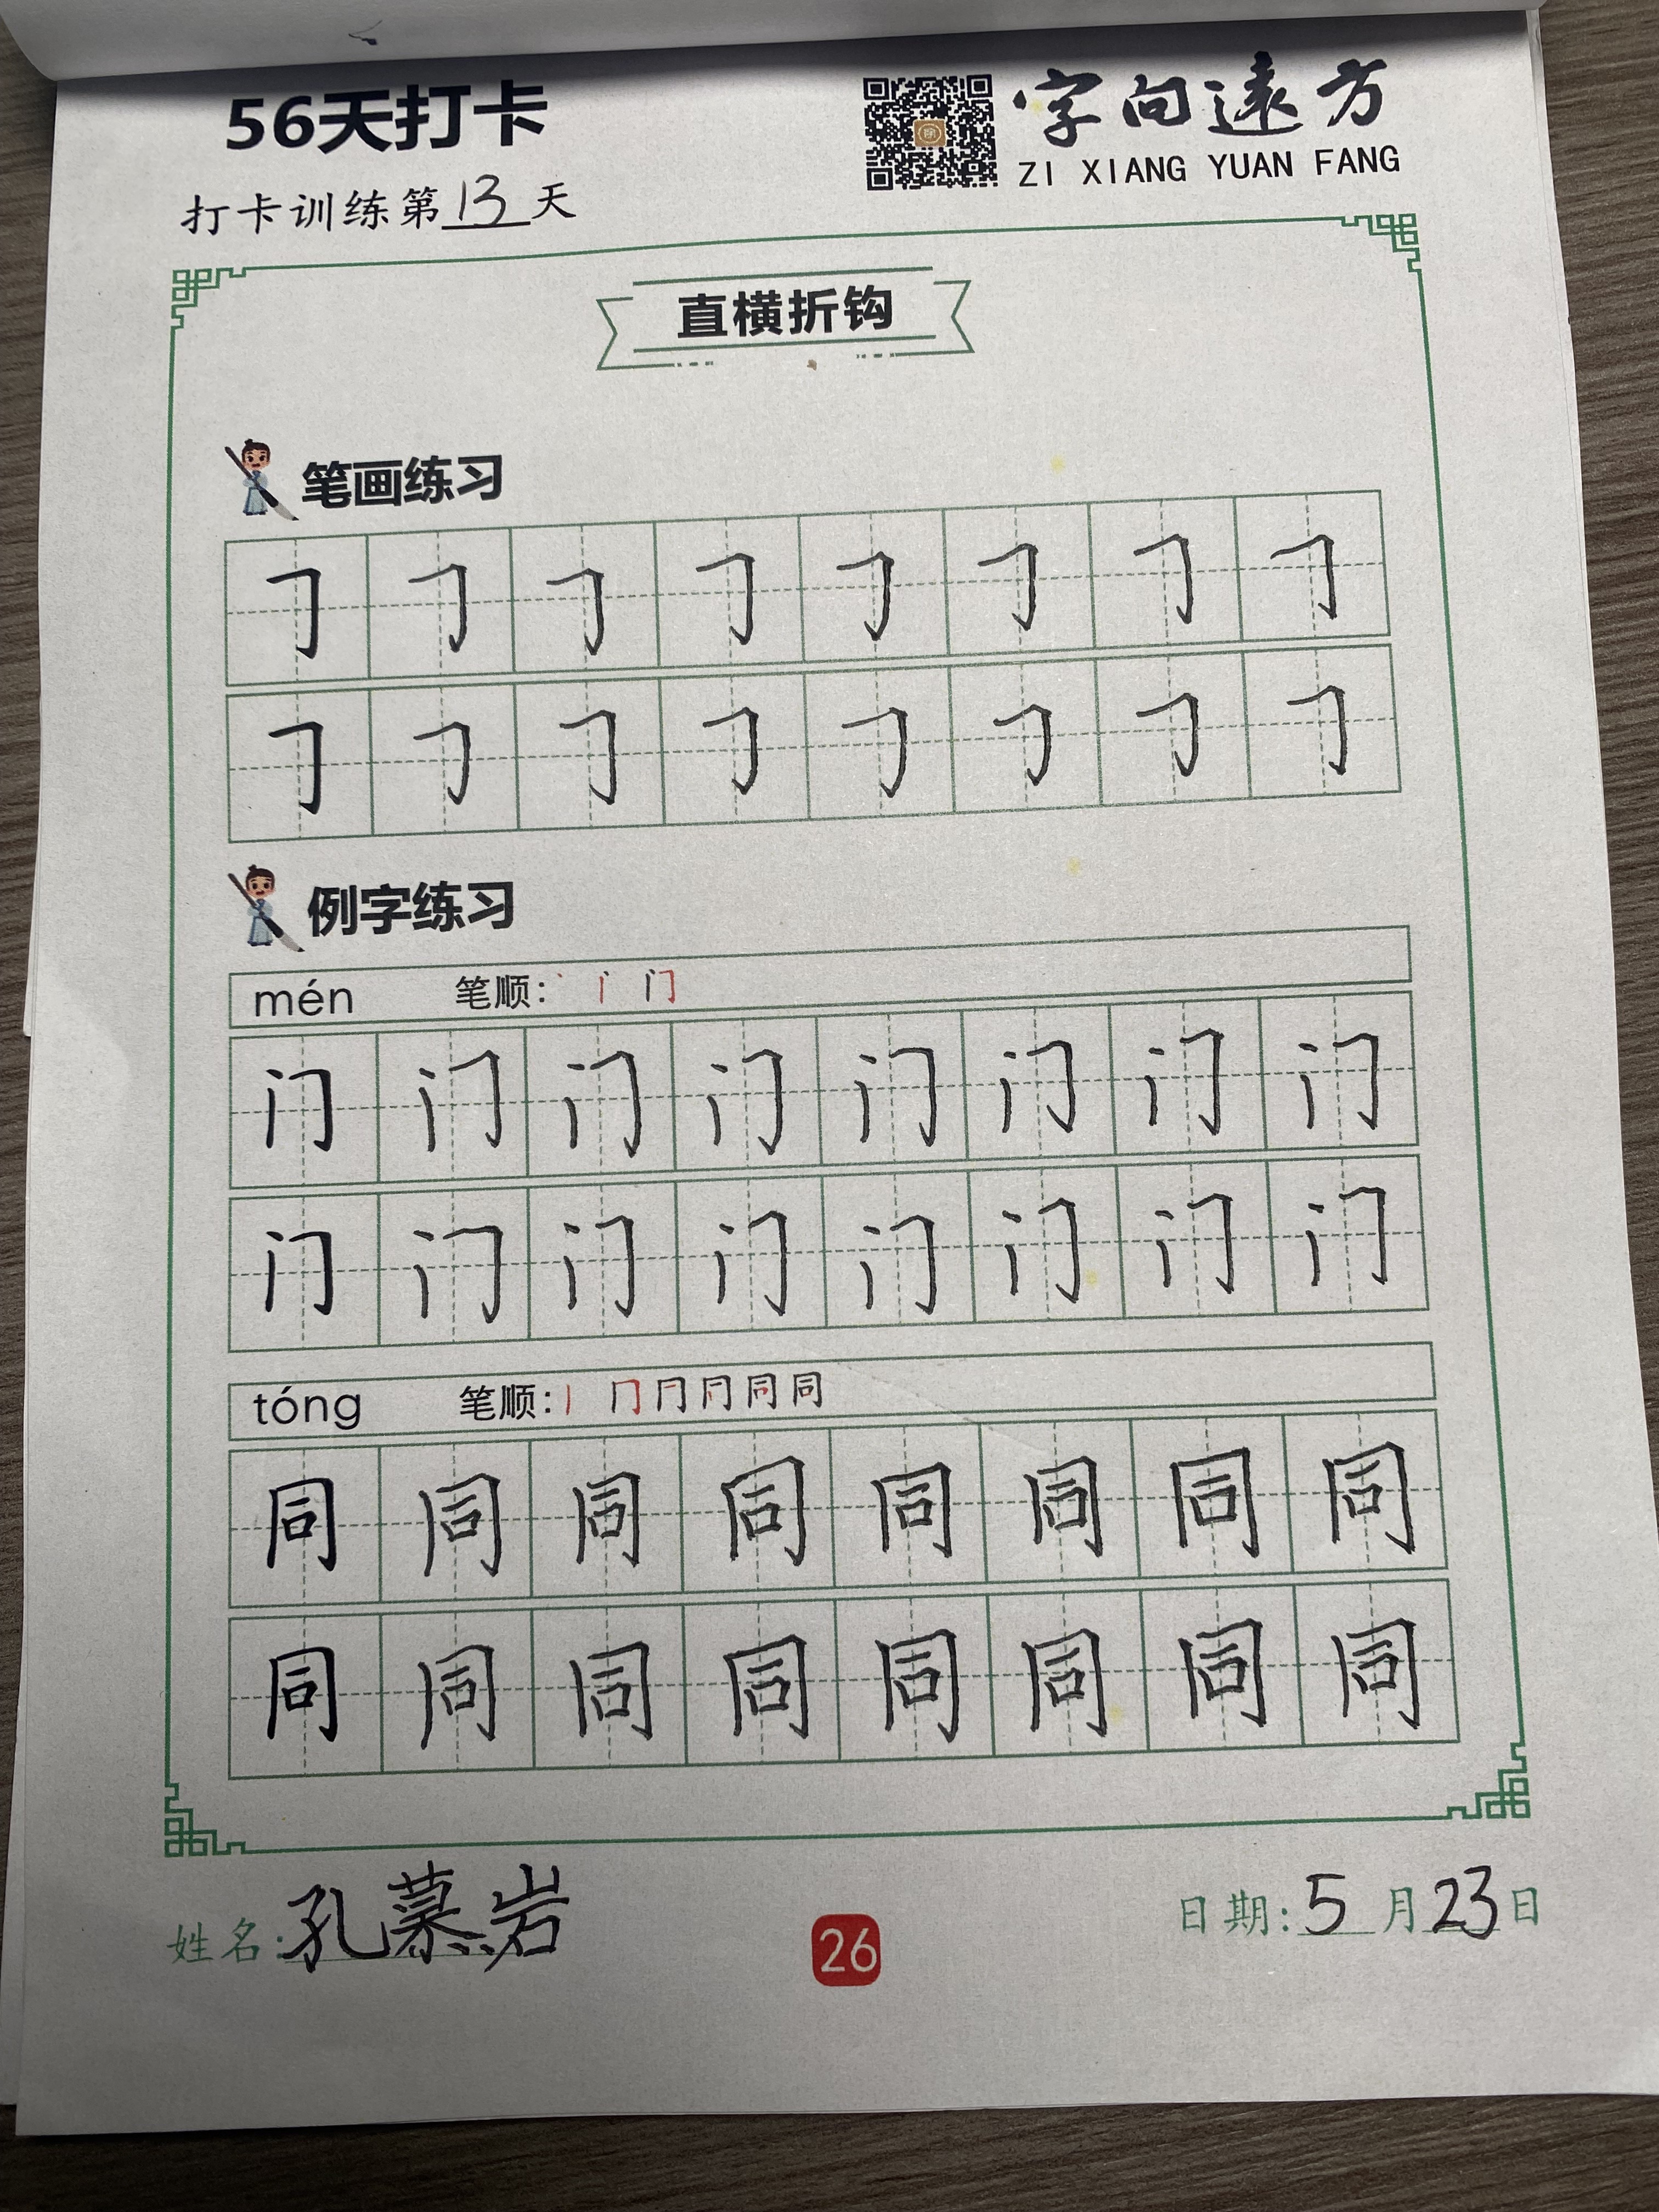 56天打卡
字向遠方
ZI XIANG YUAN FANG
打卡训练第13天
直横折钩
笔画练习
𠃌 𠃌 𠃌 𠃌 𠃌 𠃌 𠃌 𠃌
𠃌 𠃌 𠃌 𠃌 𠃌 𠃌 𠃌 𠃌
例字练习
mén 笔顺: 丶 丨 门
门 门 门 门 门 门 门 门
门 门 门 门 门 门 门 门
tóng 笔顺: 丨 冂 同 同
同 同 同 同 同 同 同 同
同 同 同 同 同 同 同 同
姓名: 孔慕岩
26
日期: 5月23日